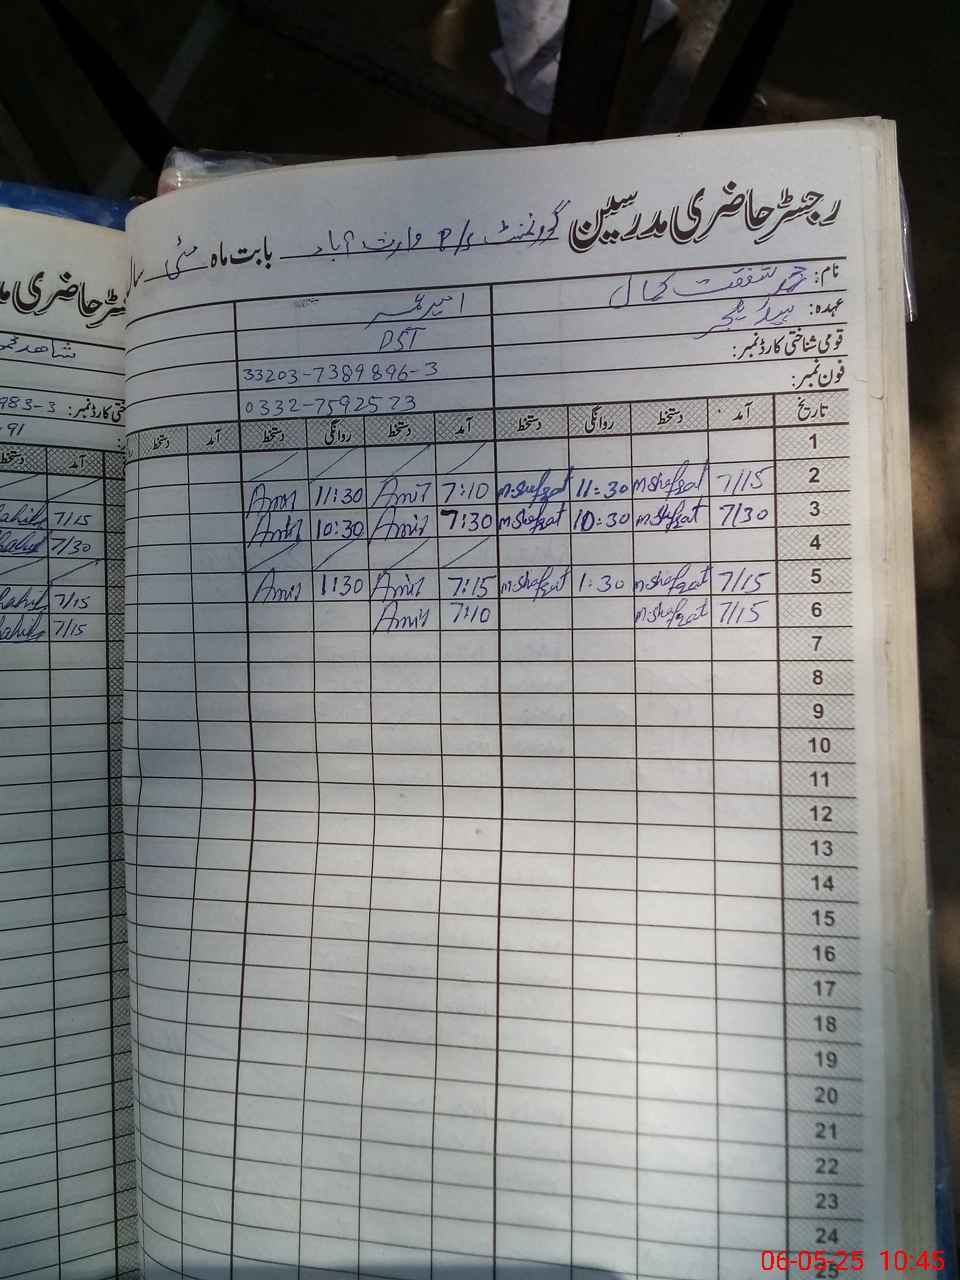 رجسٹر حاضری مدرسین گورنمنٹ P/S وارث آباد بابت ماہ مئی
نام: محمد شفقت کمال
عہدہ: ہیڈ ٹیچر
PST
قومی شناختی کارڈ نمبر: 33203-7389896-3
فون نمبر: 0332-7592573
تاریخ آمد دستخط روانگی دستخط آمد دستخط روانگی دستخط آمد دستخط
1
2 7/15 m.shafqat 11:30 m.shafqat 7:10 Amir 11:30 Amir
3 7/30 m.shafqat 10:30 m.shafqat 7:30 Amir 10:30 Amir
4
5 7/15 m.shafqat 1:30 m.shafqat 7:15 Amir 1:30 Amir
6 7/15 m.shafqat 7:10 Amir
7
8
9
10
11
12
13
14
15
16
17
18
19
20
21
22
23
24
25
رجسٹر حاضری
شاھد
983-3
-91
آمد دستخط
7/15
7/30
7/15
7/15
06-05-25 10:45